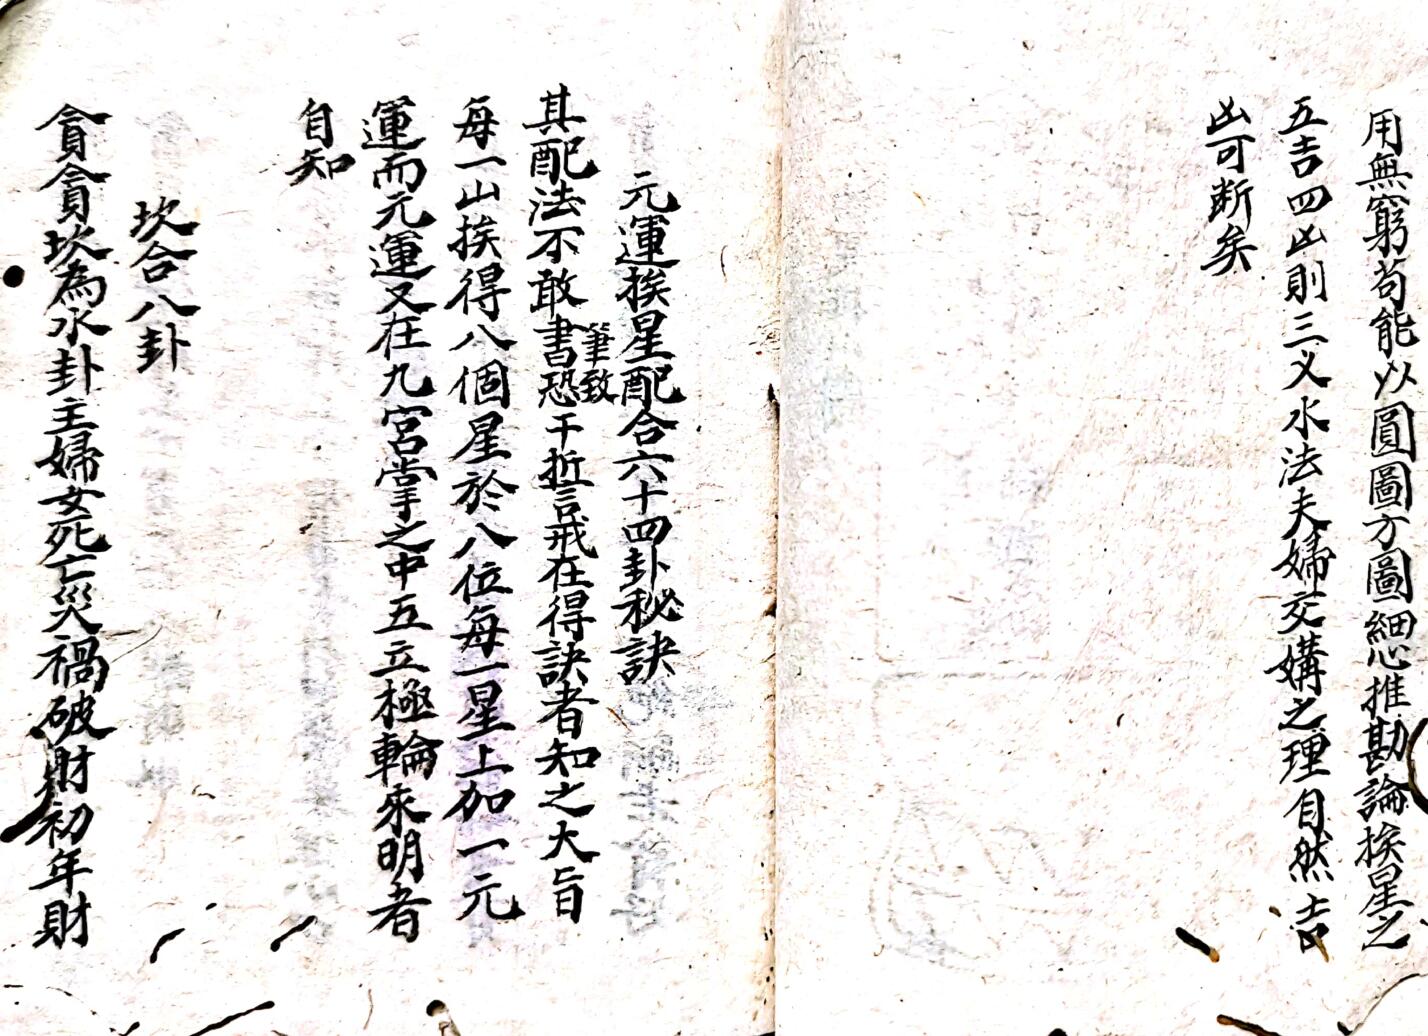 用無窮苟能以圓圖方圖細心推勘論挨星之
五吉四凶則三义水法夫婦交媾之理自然吉
凶可断矣
元運挨星配合六十四卦秘訣
其配法不敢書筆致恐干拆言戒在得訣者知之大旨
每一山挨得八個星於八位每一星上加一元
運而元運又在九宮掌之中五立極輪來明者
自知
坎合八卦
貪貪坎為水卦主婦女死亡災禍破財初年財